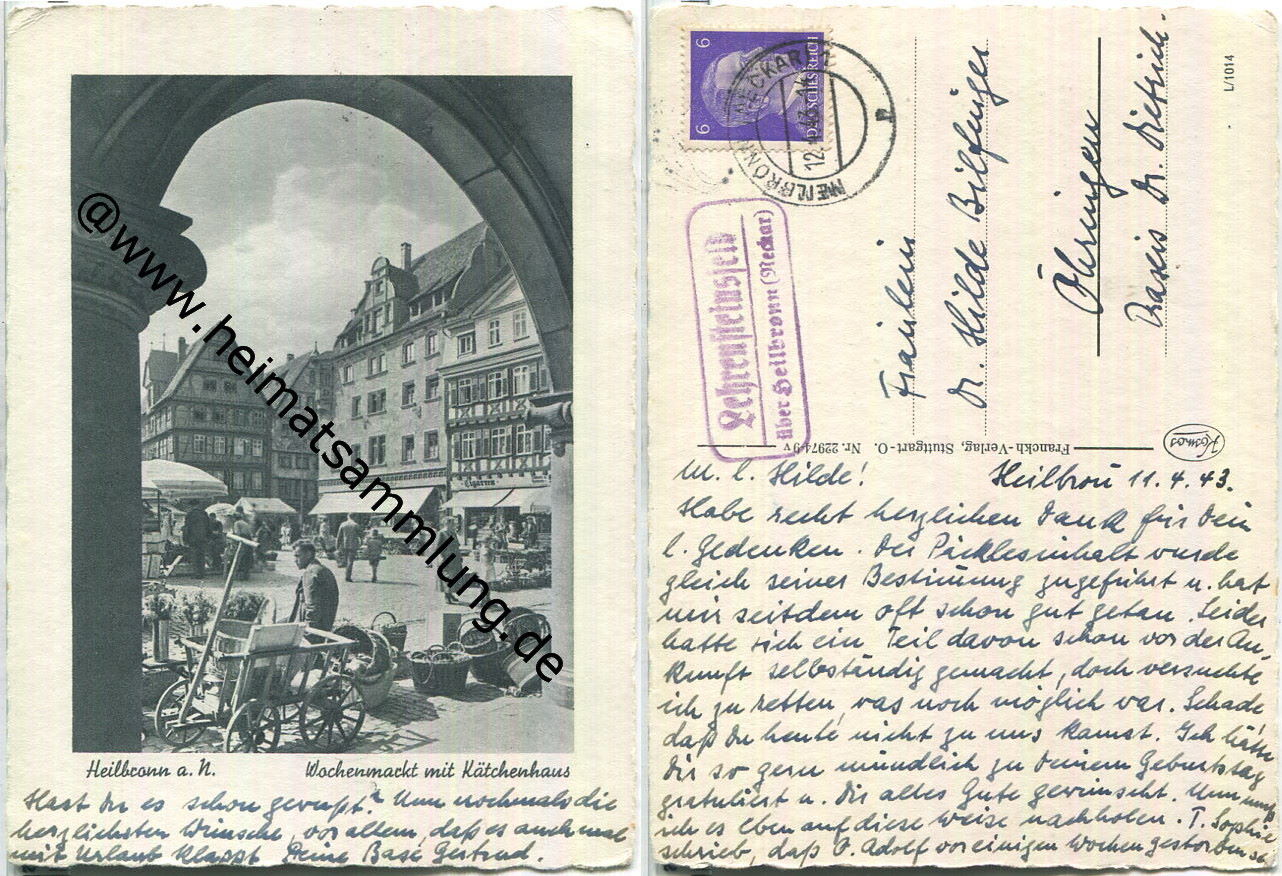 @www.heimatsammlung.de
Cigarren
Heilbronn a. N. Wochenmarkt mit Kätchenhaus
Hast Du es schon gewußt? Nun nochmals die
herzlichsten Wünsche, vor allem, daß es auch mal
mit Urlaub klappt. Deine Base Gertrud.
6 DEUTSCHES REICH 6
HEILBRONN (NECKAR)
12.4.43
Lehrensteinsfeld
über Heilbronn (Neckar)
Fräulein
Dr. Hilde Bilfinger
Öhringen
Praxis Dr. Dietrich.
L/1014
Franckh-Verlag, Stuttgart-O. Nr. 22974-9 v
Kosmos
M. l. Hilde! Heilbron̄ 11.4.43.
Habe recht herzlichen Dank für Dein
l. Gedenken. Der Päcklesinhalt wurde
gleich seiner Bestim̄ung zugeführt u. hat
mir seitdem oft schon gut getan. Leider
hatte sich ein Teil davon schon vor der An-
kunft selbständig gemacht, doch versuchte
ich zu retten, was noch möglich war. Schade
daß Du heute nicht zu uns kamst. Ich hätte
Dir so gern mündlich zu Deinem Geburtstag
gratuliert u. Dir alles Gute gewünscht. Nun muß
ich es eben auf diese Weise nachholen. T. Sophie
schrieb, daß O. Adolf vor einigen Wochen gestorben sei